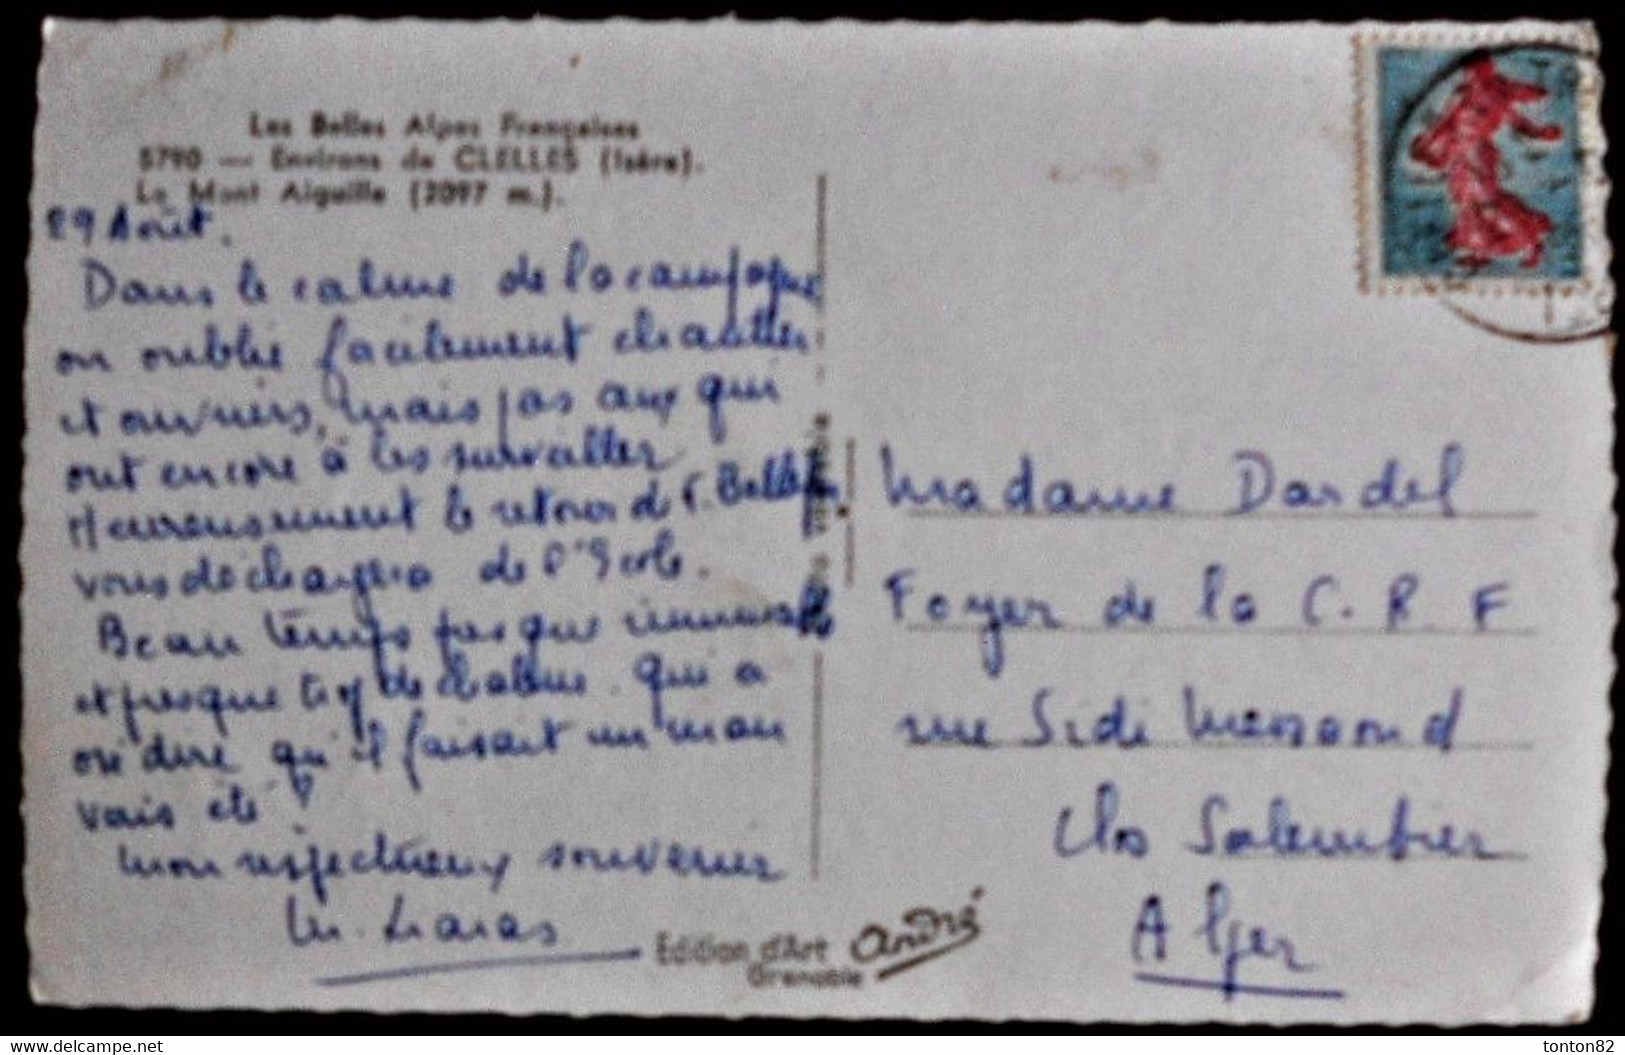 Les Belles Alpes Françaises
5790 — Environs de CLELLES (Isère).
Le Mont Aiguille (2097 m.).
29 Août.
Dans le calme de la campagne
on oublie facilement chantier
et ouvriers, mais pas aux qui
ont encore à les surveiller
Heureusement le retour de
vous déchargera de l'Ecole.
Beau temps presque immuable
et presque trop de chaleur. Qui a
osé dire qu'il faisait un mau
vais été !
Mon respectueux souvenir
Edition d'Art André
Grenoble
Madame Dardel
Foyer de la C. R. F
rue Sidi Messaoud
Clos Salembier
Alger
tonton82